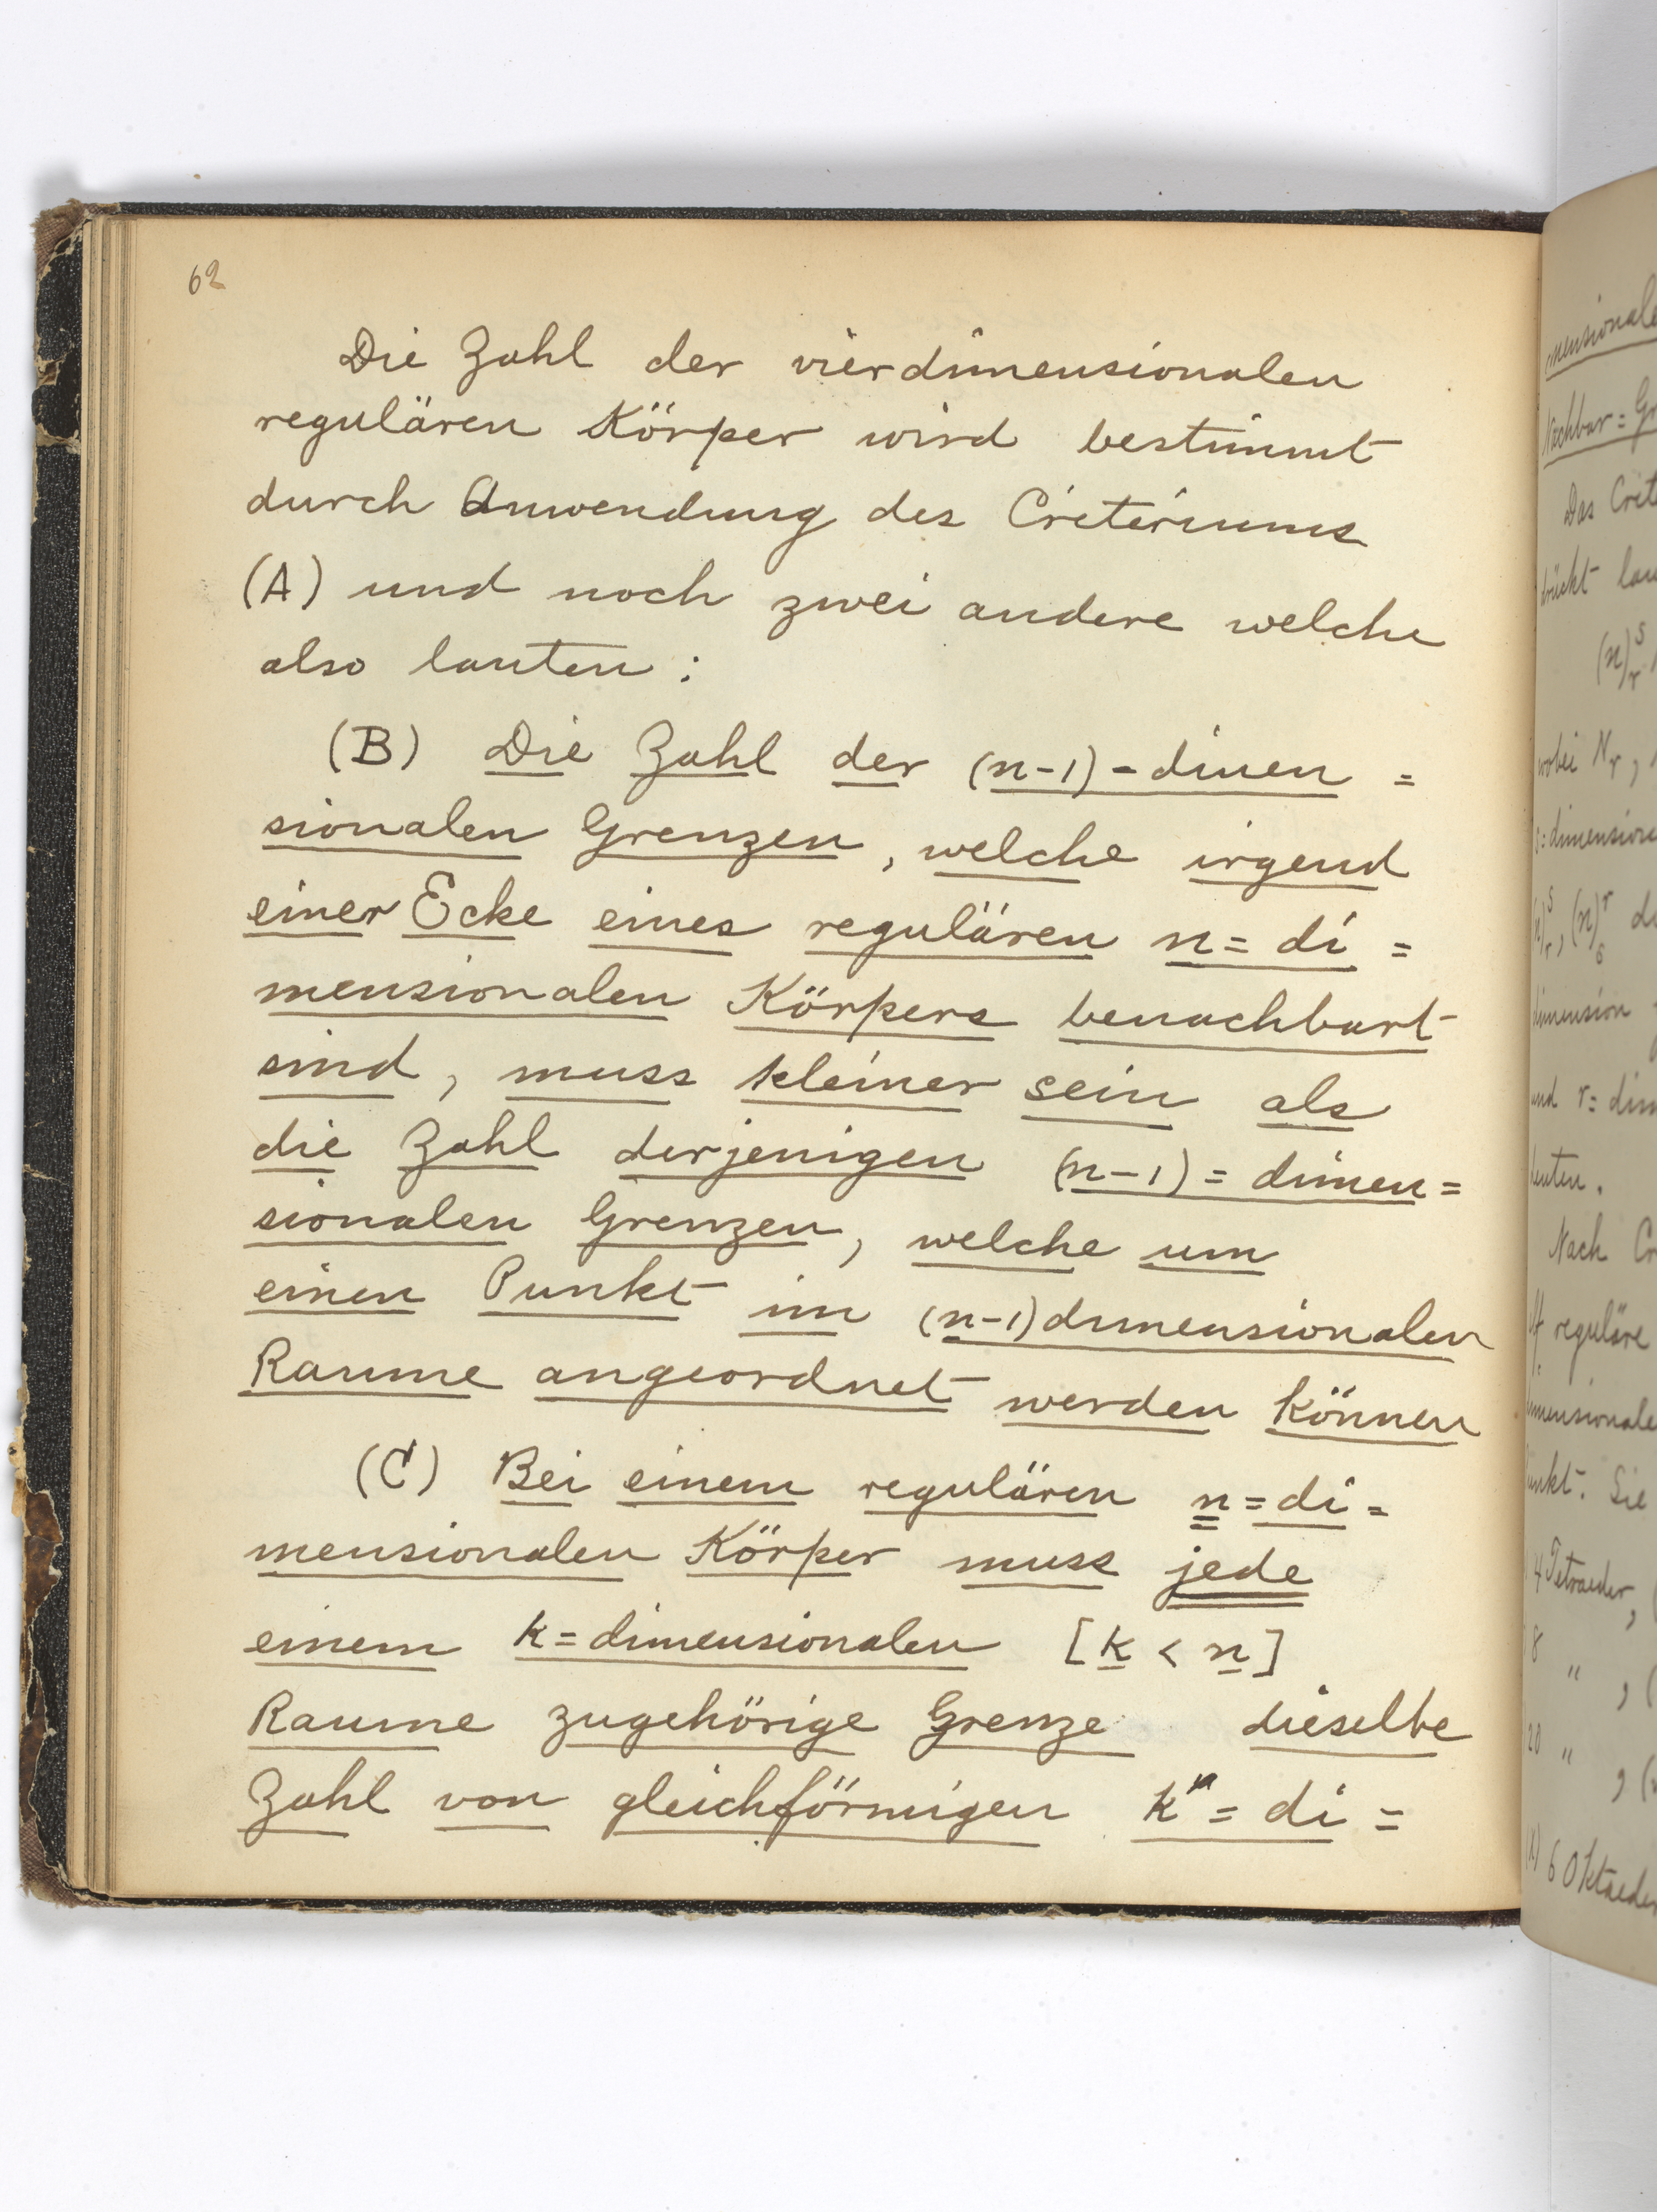 62
Die Zahl der vierdimensionalen
regulären Körper wird bestimmt
durch Anwendung des Criteriums
(A) und noch zwei andere welche
also lauten :
(B) Die Zahl der (n-1)-dimen =
sionalen Grenzen, welche irgend
einer Ecke eines regulären n = di =
mensionalen Körpers benachbart
sind, muss kleiner sein als
die Zahl derjenigen (n-1) = dimen =
sionalen Grenzen, welche um
einen Punkt im (n-1) dimensionalen
Raume angeordnet werden können
(C) Bei einem regulären n = di =
mensionalen Körper muss jede
einem k = dimensionalen [k < n]
Raume zugehörige Grenze dieselbe
Zahl von gleichförmigen k" = di =
mensionale
Nachbar = Gr
Das Crit
drückt lau
(n)
wobei Nr,
s = dimension
dimension
und r = dim
Nach Cr
reguläre
mensionale
Punkt. Sie
4 Tetraeder,
8 "
20 "
6 Oktaeder